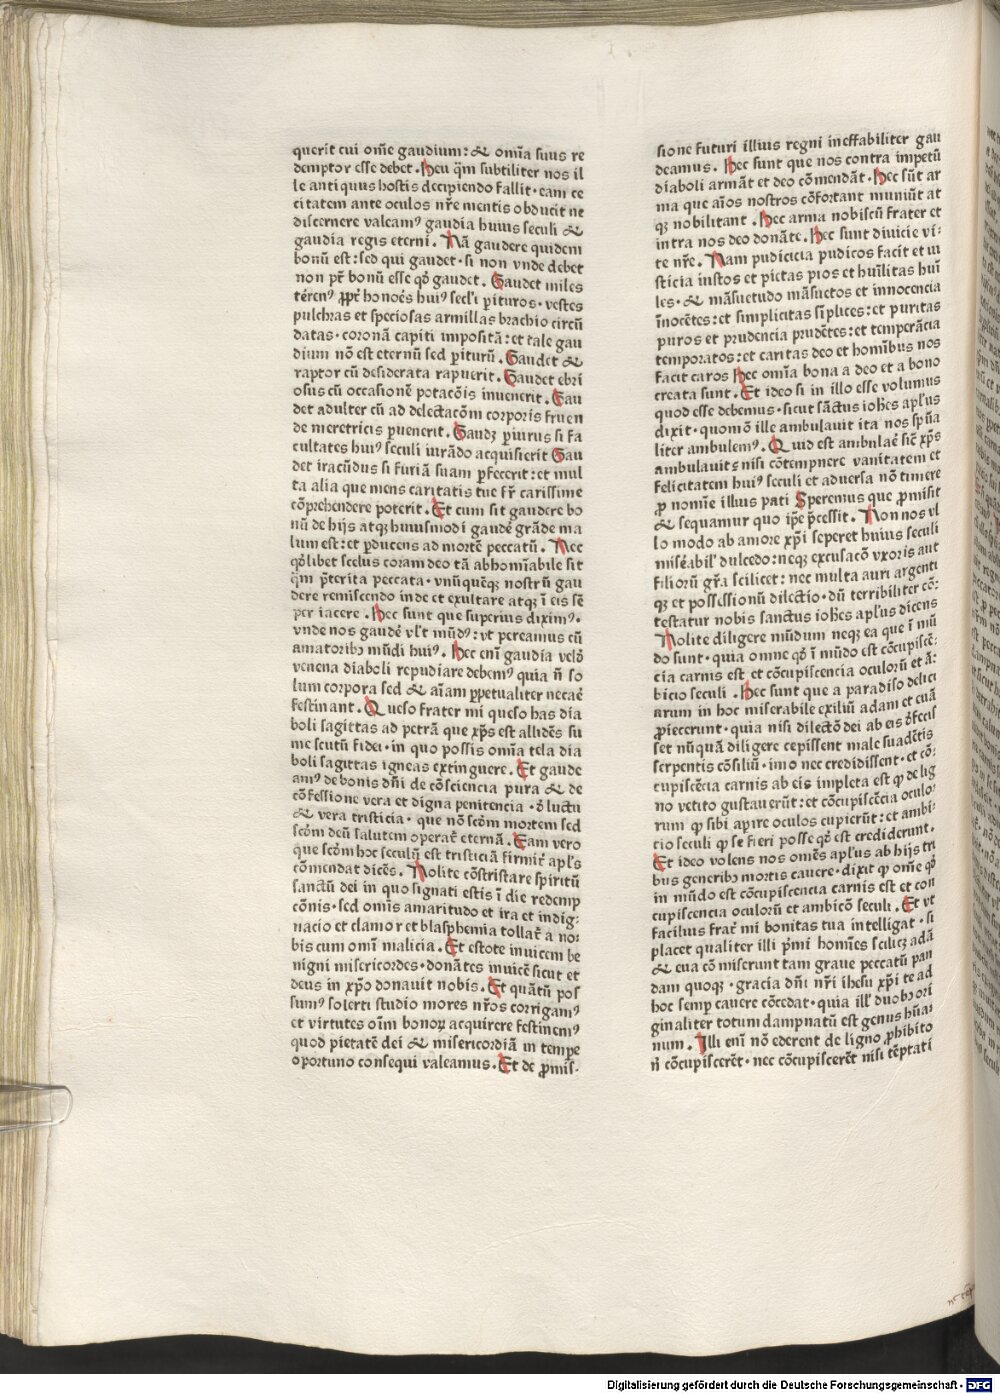 querit cui om̄e gaudium: & om̄ia suus re
demptor esse debet. Heu q̄m subtiliter nos il
le antiquus hostis decipiendo fallit. eam ce
citatem ante oculos nr̄e mentis obducit ne
discernere valeamꝰ gaudia huius seculi &
gaudia regis eterni. Nā gaudere quidem
bonū est: sed qui gaudet. si non vnde debet
non pr̄ bonū esse qd̓ gaudet. Gaudet miles
térenꝰ ꝓpr̄ honoēs huiꝰ secl̓i ꝑituros. vestes
pulchras et speciosas armillas brachio circū
datas. coronā capiti impositā: et tale gau
dium nō est eternū sed ꝑiturū. Gaudet &
raptor cū desiderata rapuerit. Gaudet ebri
osus cū occasionē potacōis inuenerit. Gau
det adulter cū ad delectacōm corporis fruen
de meretricis ꝑuenerit. Gaudꝫ ꝑiurus si fa
cultates huiꝰ seculi iurādo acquisierit Gau
det iracūdus si furiā suam ꝑfecerit: et mul
ta alia que mens caritatis tue fr̄ carissime
cōprehendere poterit. Et cum sit gaudere bo
nū de hijs atqꝫ huiusmodi gaudé grāde ma
lum est: et ꝑducens ad mortē peccatū. Nec
qd̓libet scelus coram deo tā abhomīabile sit
q̄m p̄terita peccata. vnūquēqꝫ nostrū gau
dere remiscendo inde et exultare atqꝫ ī eis sē
per iacere. Hec sunt que superius diximꝰ.
vnde nos gaudé vl̓t mūdꝰ: vt pereamus cū
amatoribꝫ mūdi huiꝰ. Hec enī gaudia velō
venena diaboli repudiare debemꝰ quia n̄ so
lum corpora sed & aīam ꝑpetualiter necaé
festinant. Queso frater mi queso has dia
boli sagittas ad petrā que xp̄s est allidēs su
me scutū fidei. in quo possis om̄ia tela dia
boli sagittas igneas extinguere. Et gaude
amꝰ de bonis dn̄i de cōsciencia pura & de
cōfessione vera et digna penitencia. d̓ luctu
& vera tristicia. que nō scd̓m mortem sed
scd̓m deū salutem operat̓ eternā. Eam vero
que scd̓m hoc seculū est tristiciā firmit̓ apl̓s
cōmendat dicēs. Nolite cōstristare spiritū
sanctū dei in quo signati estis ī die redemp
cōnis. sed om̄is amaritudo et ira et indig
nacio et clamor et blasphemia tollat̓ a no
bis cum om̄i malicia. Et estote inuicem be
nigni misericordes. donātes inuicē sicut et
deus in xp̄o donauit nobis. Et quātū pos
sumꝰ solerti studio mores nr̄os corrigamꝰ
et virtutes oīm bonoꝝ acquirere festinemꝰ
quod pietatē dei & misericordiā in tempe
oportuno consequi valeamus. Et de ꝓmis
sione futuri illius regni ineffabiliter gau
deamus. Hec sunt que nos contra impetū
diaboli armāt et deo cōmendāt. Hec sūt ar
ma que aīos nostros cōfortant muniūt at
qꝫ nobilitant. Hec arma nobiscū frater et
intra nos deo donāte. Hec sunt diuicie vi
te nr̄e. Nam pudicicia pudicos facit et iu
sticia iustos et pietas pios et humilitas hūi
les. & māsuetudo māsuetos et innocencia
īnocētes: et simplicitas sīplices: et puritas
puros et prudencia prudētes: et temperācia
temporatos: et caritas deo et hom̄ibus nos
facit caros Hec om̄ia bona a deo et a bono
creata sunt. Et ideo si in illo esse volumus
quod esse debemus. sicut sāctus ioh̄es apl̓us
dixit. quomō ille ambulauit ita nos sp̄ua
liter ambulemꝰ. Quid est ambulaé sic̄ xp̄s
ambulauit nisi cōtempnere vanitatem et
felicitatem huiꝰ seculi et aduersa nō timere
ꝓ nomīe illius pati Speremus que ꝓmisit
& sequamur quo ip̄e p̄cessit. Non nos vl
lo modo ab amore xp̄i seperet huius seculi
miséabil̓ dulcedo: neqꝫ excusacō vxoris aut
filiorū gr̄a scilicet: nec multa auri argenti
qꝫ et possessionū dilectio. dū terribiliter cō
testatur nobis sanctus ioh̄es apl̓us dicens
Nolite diligere mūdum neqꝫ ea que ī mū
do sunt. quia omne qd̓ ī mūdo est cōcupiscē
cia carnis est et cōcupiscencia oculorū et ā
bicio seculi. Hec sunt que a paradiso delici
arum in hoc miserabile exiliū adam et euā
ꝓiecerunt. quia nisi dilectō dei ab eis d̓fecis
set nūquā diligere cepissent male suadētis
serpentis cōsiliū. imo nec credidissent. et cō
cupiscēcia carnis ab eis impleta est ꝙ de lig
no vetito gustauerūt: et cōcupiscēcia oculo
rum ꝙ sibi aꝑire oculos cupierūt: et ambi
cio seculi ꝙ se fieri posse qd̓ est crediderunt.
Et ideo volens nos om̄es apl̓us ab hijs tri
bus generibꝫ mortis cauere. dixit ꝙ om̄e qd̓
in mūdo est cōcupiscencia carnis est et con
cupiscencia oculorū et ambicō seculi. Et vt
facilius frat̓ mi bonitas tua intelligat. si
placet qualiter illi p̄mi homīes scilicꝫ adā
& eua cōmiserunt tam graue peccatū pan
dam quoqꝫ. gracia dn̄i nr̄i ihesu xp̄i te ad
hoc semꝑ cauere cōcedat. quia ill̓ duobꝫ ori
ginaliter totum dampnatū est genus hūa
num. Illi enī nō ederent de ligno ꝓhibito
n̄ cōcupiscerēt. nec cōcupiscerēt nisi tēptati
Digitalisierung gefördert durch die Deutsche Forschungsgemeinschaft - DFG